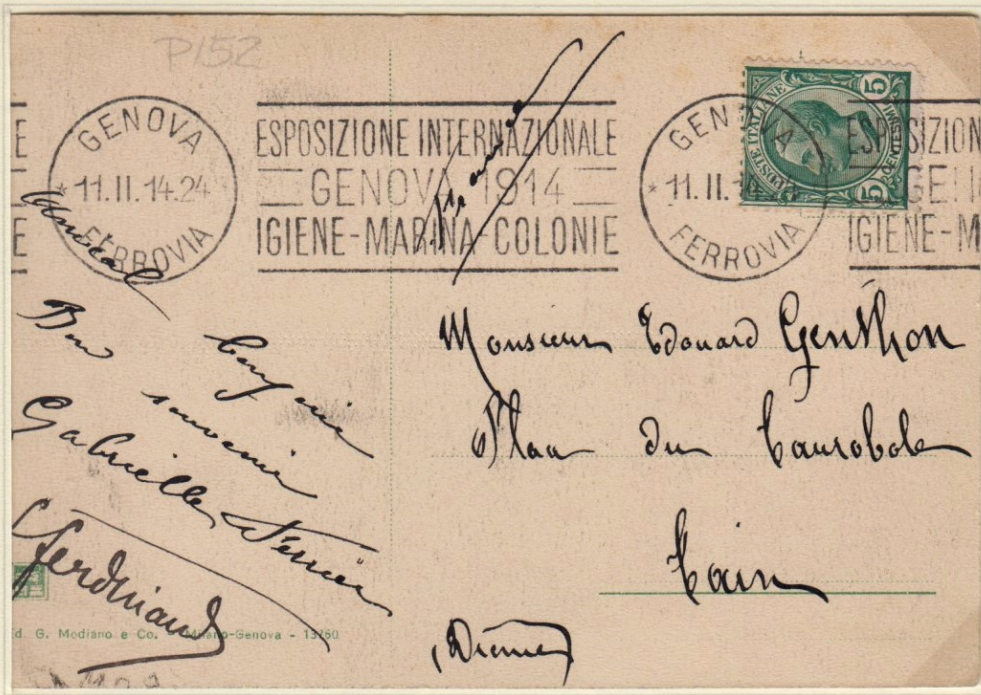 P152
GENOVA
11.II.14.24
FERROVIA
ESPOSIZIONE INTERNAZIONALE
GENOVA 1914
IGIENE-MARINA-COLONIE
GENOVA
11.II.
FERROVIA
ESPOSIZION
IGIENE-M
POSTE ITALIANE
5
CENTESIMI
5
Amical
Bon
souvenir
Gabrielle
Ferdinand
Monsieur Edouard Genthon
Place du Taurobole
Tain
(Drome)
Ed. G. Modiano e Co. - Milano-Genova - 13750